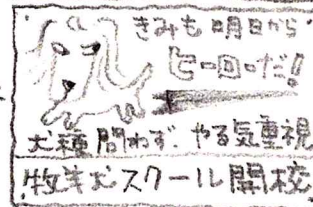 きみも明日から
ヒーローだ!
犬種問わず、やる気重視
牧羊犬スクール開校